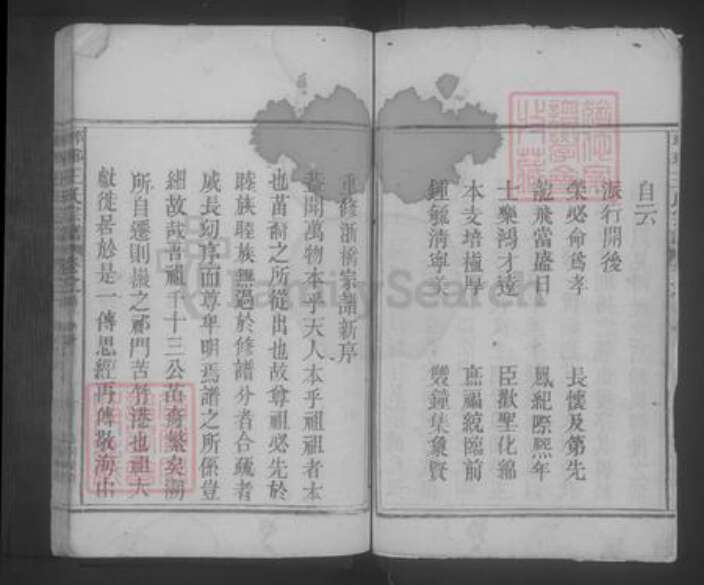 自云
派行開後
榮必命爲孝 長懷及第先
龍飛當盛日 鳳紀際熙年
士樂鴻才達 臣歌聖化綿
本支培植厚 庶福統臨前
鍾毓清寧美 雙鐘集象賢
重修浙橋宗譜新序
蓋聞萬物本乎天人本乎祖祖者本
也苗裔之所從出也故尊祖必先於
睦族睦族無過於修譜分者合疏者
戚長幼序而尊卑明焉譜之所係豈
細故哉吾祖千十三公苗裔繁矣溯
所自遷則據之祁門苦竹港也祖大
獻徙居於是一傳思經再傳敬海由
FamilySearch